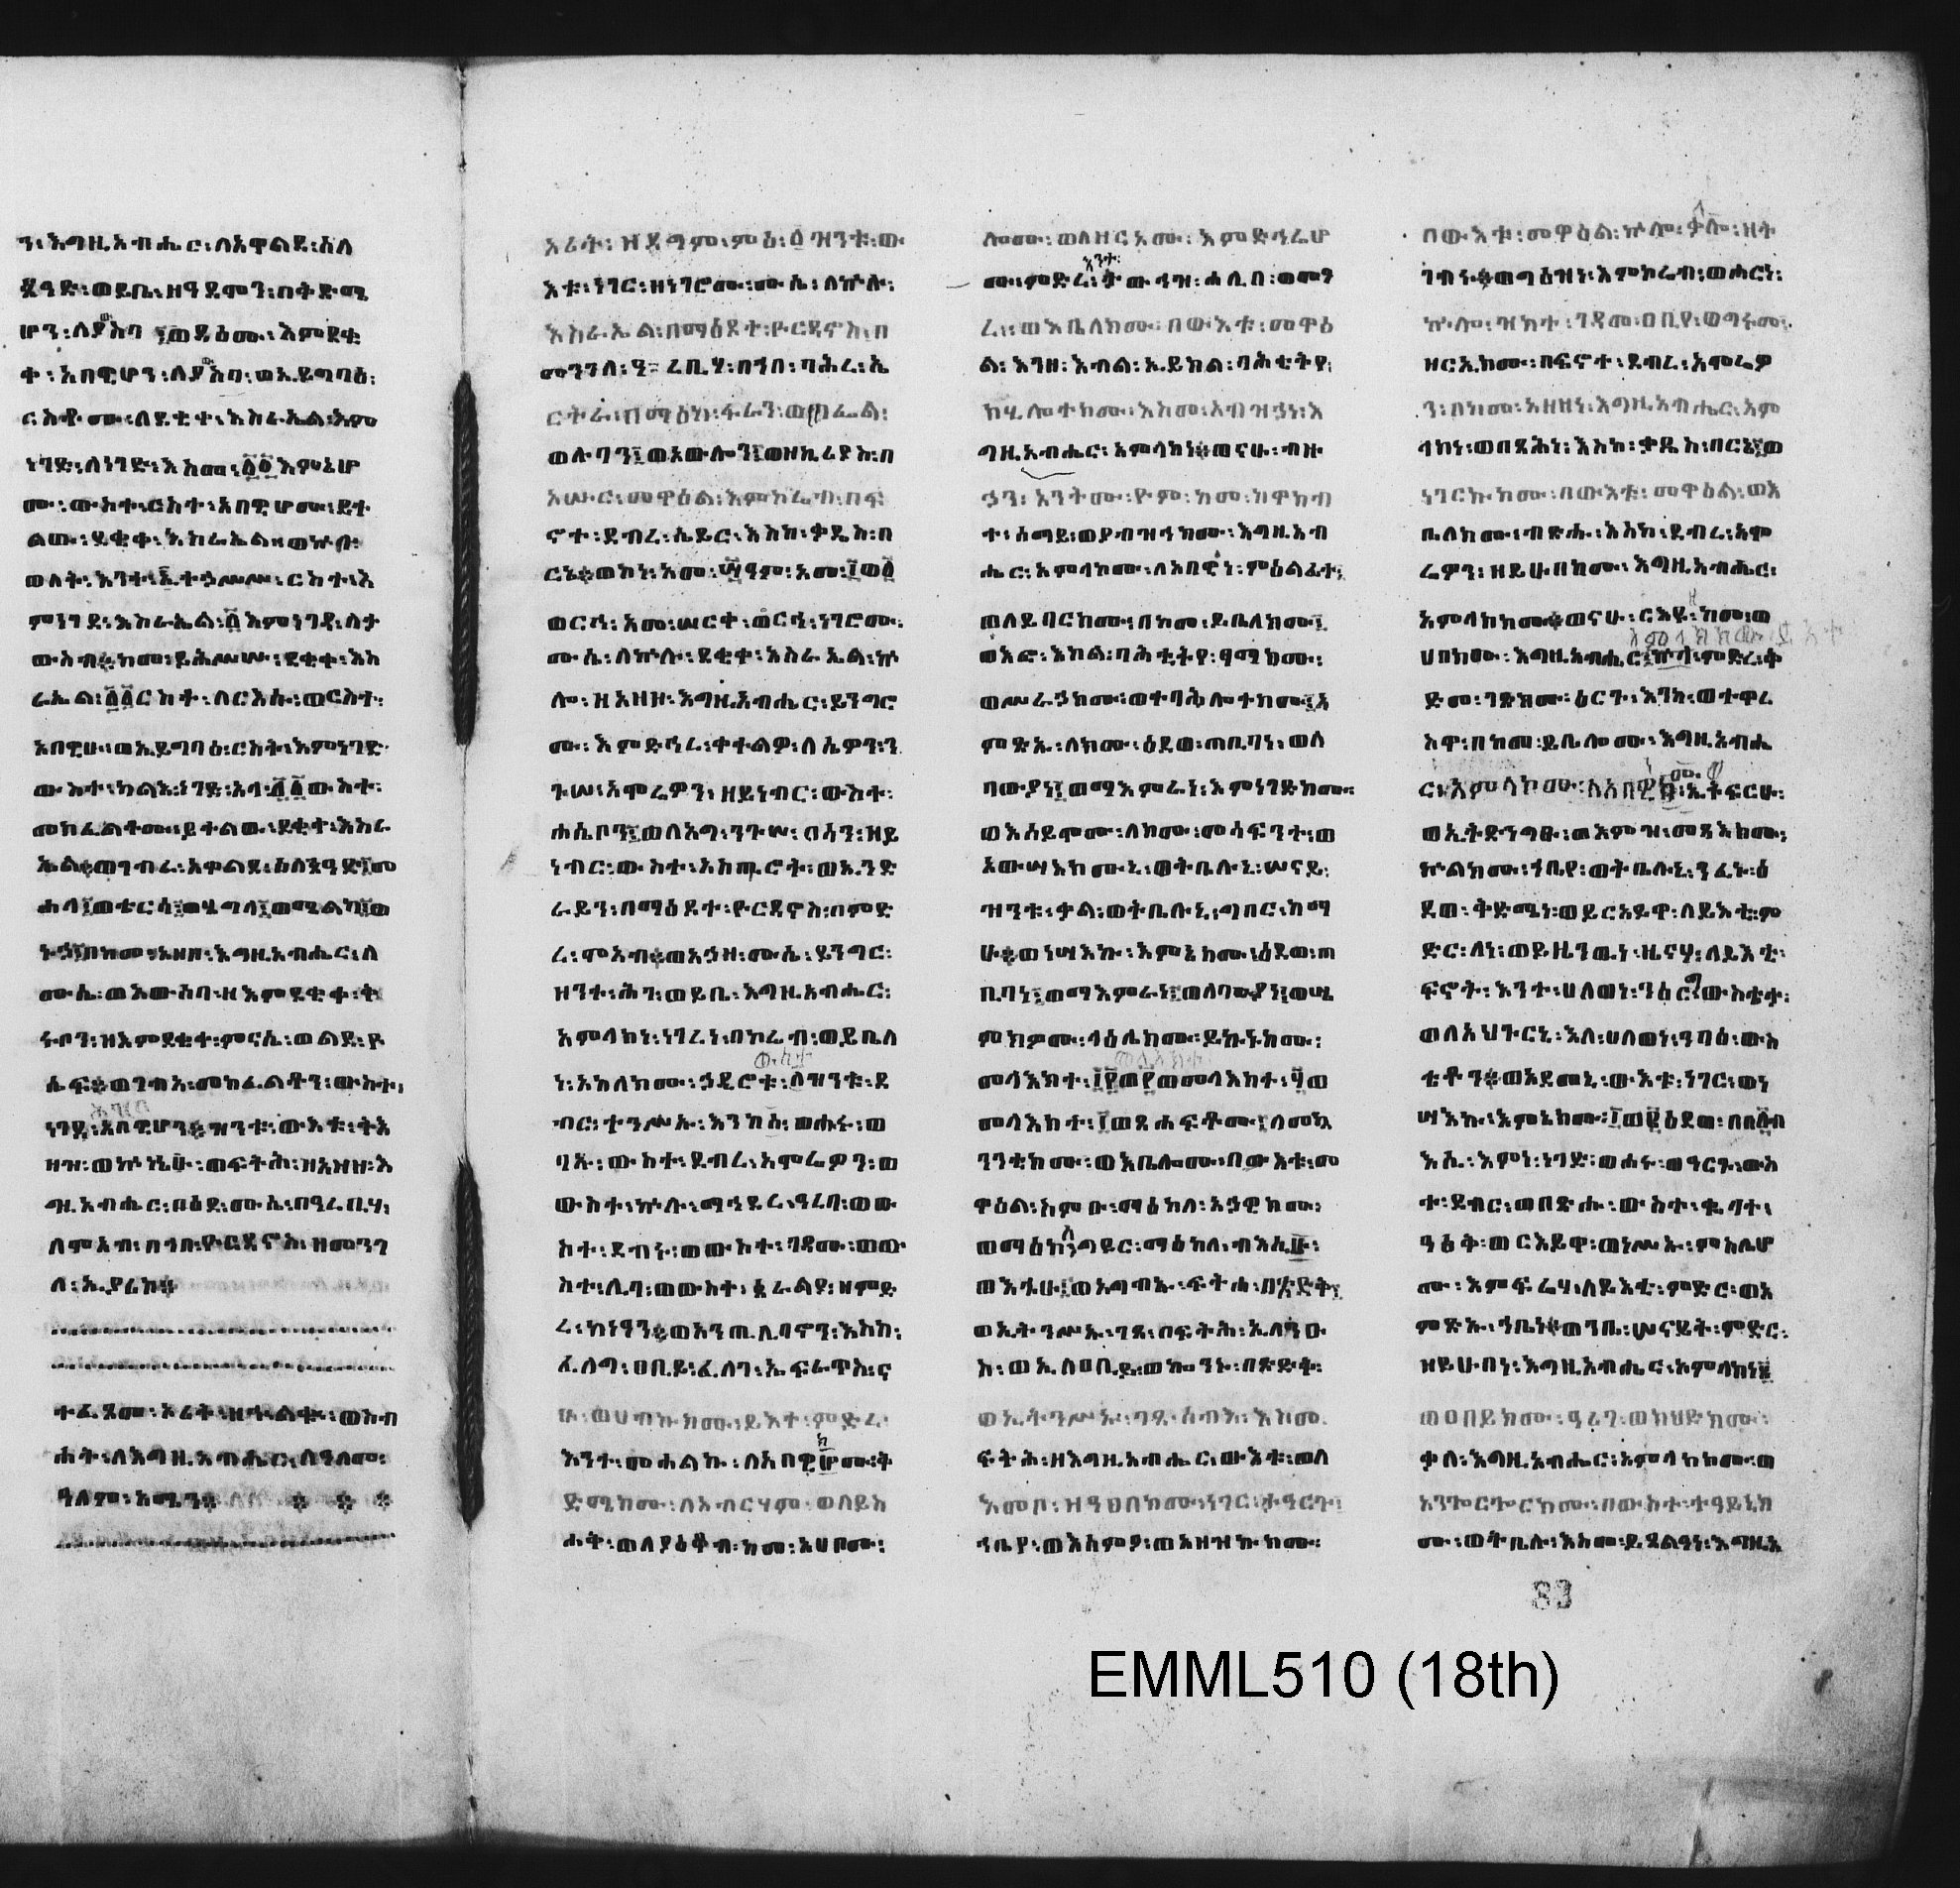 ን፡ እግዚአብሔር፡ ለአዋልደ፡ ሰለ
ጰዓድ፡ ወይቤ፡ ዘዓደሞን፡ በቅድሜ
ነገድ፡ ለነገድ፡ እስመ፡ ፩፩ እምኔሆ
ሙ፡ ውስተ፡ ርስተ፡ አበዊሆሙ፡ ይተ
ልው፡ ደቂቀ፡ እስራኤል። ወኵሉ፡
ወለት፡ እንተ፡ ትኃሥሥ፡ ርስተ፡ እ
ምነገደ፡ እስራኤል፡ ፩ እምነገዱ፡ ለታ
ው፡ ከመ፡ ይሕሥሡ፡ ደቂቀ፡ እስ
ራኤል፡ ፩፩ ርስተ፡ ወርስተ፡
አበዊሁ፡ ወኢይግባዕ፡ ርስት፡ እምነገድ
ውስተ፡ ካልእ፡ ነገድ፡ አላ፡ ፩፩ ውስተ፡
መክፈልቶሙ፡ ይተልው፡ ደቂቀ፡ እስራ
ኤል። ወገብራ፡ አዋልደ፡ ሰለጰዓድ፤ መ
ሐላ፤ ወቴርሳ፤ ወሄግላ፤ ወሜልካ፤ ወ
ኑኃ፤ በከመ፡ አዘዘ፡ እግዚአብሔር፡ ለ
ሙሴ፡ ወአውሰባ፡ ዘእምደቂቀ፡
ዘእምደቂቀ፡ ምናሴ፡ ወልደ፡ ዮ
ሴፍ። ወገብአ፡ መክፈልቶን፡ ውስተ፡
ነገደ፡ አበዊሆን። ዝንቱ፡ ውእቱ፡ ትእ
ዛዝ፡ ወኵነኔሁ፡ ወፍትሕ፡ ዘአዘዘ፡ እ
ግዚአብሔር፡ በዕደ፡ ሙሴ፡ በዓረቢሃ፡
ለምአብ፡ በኀበ፡ ዮርዳኖስ፡ ዘመንገ
ለ፡ ኢያሪኮ።
ተፈጸመ፡ ኦሪት፡ ዘኍልቍ፡ ወስብ
ሐት፡ ለእግዚአብሔር፡ ለዓለመ፡
ዓለም፡ አሜን።
ኦሪት፡ ዝንቱ፡ ው
እቱ፡ ነገር፡ ዘነገሮሙ፡ ሙሴ፡ ለኵሉ፡
እስራኤል፡ በማዕዶተ፡ ዮርዳኖስ፡ በ
መንገለ፡ ዓረቢሃ፡ በኀበ፡ ባሕረ፡ ኤ
ርትራ፡ በማዕከለ፡ ፋራን፡ ወጦፌል፡
ወሉባን፤ ወአውሎን፤ ወዘኪሪያስ፡ በ
አሡር፡ መዋዕል፡ እምኮሬብ፡ በፍ
ኖተ፡ ደብረ፡ ሴይር፡ እስከ፡ ቃዴስ፡ በ
ርኔ። ወኮነ፡ አመ፡ ዓም፡ አመ፡ ፲ወ፩
ወርኅ፡ አመ፡ ሠርቀ፡ ወርኅ፡ ነገሮሙ፡
ሙሴ፡ ለኵሉ፡ ደቂቀ፡ እስራኤል፡ ኵ
ሎ፡ ዘአዘዘ፡ እግዚአብሔር፡ ይንግሮ
ሙ፡ እምድኅረ፡ ቀተልዎ፡ ለሴዎን፡ ን
ጉሠ፡ አሞሬዎን፡ ዘይነብር፡ ውስተ፡
ሐሴቦን፤ ወለአግ፡ ንጉሠ፡ ባሳን፡ ዘይ
ነብር፡ ውስተ፡ አስጤሮት፡ ወኤንድ
ራይን፡ በማዕዶተ፡ ዮርዳኖስ፡ በምድ
ረ፡ ሞአብ። ወአኃዘ፡ ሙሴ፡ ይንግር፡
ዘንተ፡ ሕገ፡ ወይቤ፡ እግዚአብሔር፡
አምላክነ፡ ነገረነ፡ በኮሬብ፡ ወይቤለ
ነ፡ አክለክሙ፡ ኃዲሮቱ፡ ለዝንቱ፡ ደ
ብር፡ ተንሥኡ፡ እንከሰ፡ ወሑሩ፡ ወ
ባኡ፡ ውስተ፡ ደብረ፡ አሞሬዎን፡ ወ
ውስተ፡ ኵሉ፡ ማኅደረ፡ ዓረባ፡ ወው
ስተ፡ ደብሩ፡ ወውስተ፡ ገዳሙ፡ ወው
ስተ፡ ሊባ፡ ወውስተ፡ ጰራልያ፡ ዘምድ
ረ፡ ከነዓን። ወአንጢሊባኖን፡ እስከ፡
ፈለግ፡ ዐቢይ፡ ፈለገ፡ ኤፍራጥስ፡ ና
ሁ፡ ወሀብኩክሙ፡ ይእተ፡ ምድረ፡
እንተ፡ መሐልኩ፡ ለአበዊሆሙ፡ ቅ
ድሜክሙ፡ ለአብርሃም፡ ወለይስ
ሐቅ፡ ወለያዕቆብ፡ ከመ፡ አሀቦሙ፡
ሎሙ፡ ወለዘርኦሙ፡ እምድኅሬሆ
ሙ፡ ምድረ፡ እንተ፡ ትውኅዝ፡ ሐሊበ፡ ወመዓ
ረ፡ ወእቤለክሙ፡ በውእቱ፡ መዋዕ
ል፡ እንዘ፡ እብል፡ ኢይክል፡ ባሕቲትየ፡
ከሃሎተክሙ፡ እስመ፡ አብዝኃነ፡ እ
ግዚአብሔር፡ አምላክነ። ወናሁ፡ ብዙ
ኃን፡ አንትሙ፡ ዮም፡ ከመ፡ ከዋክብ
ተ፡ ሰማይ፡ ወያብዝኅክሙ፡ እግዚአብ
ሔር፡ አምላክሙ፡ ለአበዊነ፡ ምዕልፊተ፤
ወለይባርክሙ፡ በከመ፡ ይቤለክሙ፤
ወእፎ፡ እክል፡ ባሕቲትየ፡ ፃማክሙ፡
ወሥራኃክሙ፡ ወተባሕሎተክሙ፤ አ
ምጽኡ፡ ለክሙ፡ ዕደወ፡ ጠቢባነ፡ ወለ
ባውያነ፤ ወማእምራነ፡ እምነገድክሙ፡
ወእሰይሞሙ፡ ለክሙ፡ መሳፍንተ፡ ወ
አውሣእክሙኒ፡ ወትቤሉኒ፡ ሠናይ፡
ዝንቱ፡ ቃል፡ ወትቤሉኒ፡ ግበር፡ ከማ
ሁ። ወነሣእኩ፡ እምኔክሙ፡ ዕደወ፡ ጠ
ቢባነ፤ ወማእምራነ፤ ወለባውያነ፤ ወሤ
ምክዎሙ፡ ላዕሌክሙ፡ ይኰንኑክሙ፡
መላእክተ፡ ወመላእክተ፡
መላእክተ፡ ፲ ወጸሐፍቶሙ፡ ለመኳ
ንንቲክሙ፡ ወእቤሎሙ፡ በውእቱ፡ መ
ዋዕል፡ ስምዑ፡ ማዕከለ፡ አኃዊክሙ፡
ወማዕከለ፡ ግዩር፡ ማዕከለ፡ ብእሲሁ፡
ወእኁሁ፤ ወአግብኡ፡ ፍትሐ፡ በጽድቅ፤
ወኢትንሥኡ፡ ገጸ፡ በፍትሕ፡ ኢለንዑ
ስ፡ ወኢለዐቢይ፡ ወኰንኑ፡ በጽድቅ፡
ወኢትንሥኡ፡ ገጸ፡ ሰብእ፡ እስመ፡
ፍትሕ፡ ዘእግዚአብሔር፡ ውእቱ፡ ወለ
እመቦ፡ ዘዓፀበክሙ፡ ነገር፡ ታዓርጉ፡
ኀቤየ፡ ወእሰምዖ፡ ወአዘዝኩክሙ፡
በውእቱ፡ መዋዕል፡ ኵሎ፡ ቃሎ፡ ዘት
ገብሩ። ወግዕዝነ፡ እምኮሬብ፡ ወሖርነ፡
ኵሎ፡ ዝክተ፡ ገዳመ፡ ዐቢየ፡ ወግሩመ፡
ዘርኢክሙ፡ በፍኖተ፡ ደብረ፡ አሞሬዎ
ን፡ በከመ፡ አዘዘነ፡ እግዚአብሔር፡ አም
ላክነ፡ ወበጻሕነ፡ እስከ፡ ቃዴስ፡ በርኔ፤ ወ
ነገርኩክሙ፡ በውእቱ፡ መዋዕል፡ ወእ
ቤለክሙ፡ ብጽሑ፡ እስከ፡ ደብረ፡ አሞ
ሬዎን፡ ዘይሁበክሙ፡ እግዚአብሔር፡
አምላክክሙ። ወናሁ፡ ርእዩ፡ ከመ፡ ወ
ሀበክሙ፡ እግዚአብሔር፡ ምድረ፡ ቅ
ድመ፡ ገጽክሙ፡ ዕርጉ፡ እንከ፡ ወተዋረ
ስዋ፡ በከመ፡ ይቤሎሙ፡ እግዚአብሔ
ር፡ አምላኮሙ፡ ለአበዊክሙ፡ ኢትፍርሁ፡
ወኢትደንግፁ፡ ወእምዝ፡ መጻእክሙ፡
ኵልክሙ፡ ኀቤየ፡ ወትቤሉኒ፡ ንፈኑ፡ ዕ
ደወ፡ ቅድሜነ፡ ወይርአይዋ፡ ለይእቲ፡ ም
ድር፡ ለነ፡ ወይዜንዉነ፡ ዜናሃ፡ ለይእቲ፡
ፍኖት፡ እንተ፡ ሀለወነ፡ ንዕርግ፡ ውስቴታ፡
ወለአህጉርኒ፡ እለ፡ ሀለወነ፡ ንባዕ፡ ውስ
ቴቶን። ወአደመኒ፡ ውእቱ፡ ነገር፡ ወነ
ሣእኩ፡ እምኔክሙ፡ ፲ወ፪ ዕደወ፡ በበ፩ብ
እሲ፡ እምነ፡ ነገድ፡ ወሖሩ፡ ወዓርጉ፡ ውስ
ተ፡ ደብር፡ ወበጽሑ፡ ውስተ፡ ቈላተ፡
ዓፅቅ፡ ወርእይዋ፡ ወነሥኡ፡ ምስሌሆ
ሙ፡ እምፍሬሃ፡ ለይእቲ፡ ምድር፡ ወአ
ምጽኡ፡ ኀቤነ። ወንቤ፡ ሠናይት፡ ምድር፡
ዘይሁበነ፡ እግዚአብሔር፡ አምላክነ፤
ወዐበይክሙ፡ ዓሪገ፡ ወክህድክሙ፡
ቃለ፡ እግዚአብሔር፡ አምላክክሙ፡ ወ
አንጐርጐርክሙ፡ በውስተ፡ ተዓይኒክ
ሙ፡ ወትቤሉ፡ እስመ፡ ይጸልዓነ፡ እግዚአ
83
EMML510 (18th)